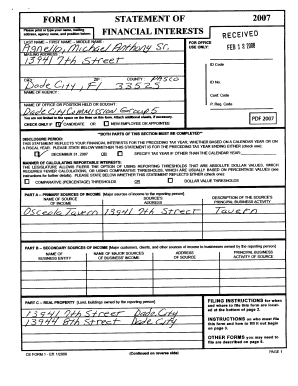 FORM 1 STATEMENT OF 2007
FINANCIAL INTERESTS
Please print or type your name, mailing
address, agency name, and position below:
RECEIVED
FEB 13 2008
FOR OFFICE
USE ONLY:
LAST NAME -- FIRST NAME -- MIDDLE NAME:
Agnello, Michael Anthony Sr.
MAILING ADDRESS:
13941 7th Street
ID Code
CITY: ZIP: COUNTY: PASCO
Dade City, Fl 33525
ID No.
NAME OF AGENCY:
Conf. Code
NAME OF OFFICE OR POSITION HELD OR SOUGHT:
P. Req. Code
Dade City Commission Group 5
You are not limited to the space on the lines on this form. Attach additional sheets, if necessary.
CHECK ONLY IF CANDIDATE OR NEW EMPLOYEE OR APPOINTEE
PDF 2007
**BOTH PARTS OF THIS SECTION MUST BE COMPLETED**
DISCLOSURE PERIOD:
THIS STATEMENT REFLECTS YOUR FINANCIAL INTERESTS FOR THE PRECEDING TAX YEAR, WHETHER BASED ON A CALENDAR YEAR OR ON
A FISCAL YEAR. PLEASE STATE BELOW WHETHER THIS STATEMENT IS FOR THE PRECEDING TAX YEAR ENDING EITHER (check one):
DECEMBER 31, 2007 OR SPECIFY TAX YEAR IF OTHER THAN THE CALENDAR YEAR:
MANNER OF CALCULATING REPORTABLE INTERESTS:
THE LEGISLATURE ALLOWS FILERS THE OPTION OF USING REPORTING THRESHOLDS THAT ARE ABSOLUTE DOLLAR VALUES, WHICH
REQUIRES FEWER CALCULATIONS, OR USING COMPARATIVE THRESHOLDS, WHICH ARE USUALLY BASED ON PERCENTAGE VALUES (see
instructions for further details). PLEASE STATE BELOW WHETHER THIS STATEMENT REFLECTS EITHER (check one):
COMPARATIVE (PERCENTAGE) THRESHOLDS OR DOLLAR VALUE THRESHOLDS
PART A -- PRIMARY SOURCES OF INCOME [Major sources of income to the reporting person]
NAME OF SOURCE OF INCOME SOURCE'S ADDRESS DESCRIPTION OF THE SOURCE'S PRINCIPAL BUSINESS ACTIVITY
Osceola Tavern 13941 7th Street Tavern
PART B -- SECONDARY SOURCES OF INCOME [Major customers, clients, and other sources of income to businesses owned by the reporting person]
NAME OF BUSINESS ENTITY NAME OF MAJOR SOURCES OF BUSINESS' INCOME ADDRESS OF SOURCE PRINCIPAL BUSINESS ACTIVITY OF SOURCE
PART C -- REAL PROPERTY [Land, buildings owned by the reporting person]
13941 7th Street Dade City
13944 8th Street Dade City
FILING INSTRUCTIONS for when
and where to file this form are located
at the bottom of page 2.
INSTRUCTIONS on who must file
this form and how to fill it out begin
on page 3.
OTHER FORMS you may need to
file are described on page 6.
CE FORM 1 - Eff. 1/2008 (Continued on reverse side) PAGE 1